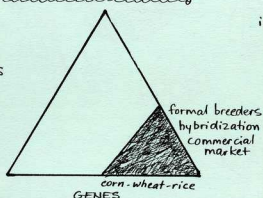 i
s
formal breeders
hybridization
commercial
market
corn-wheat-rice
GENES